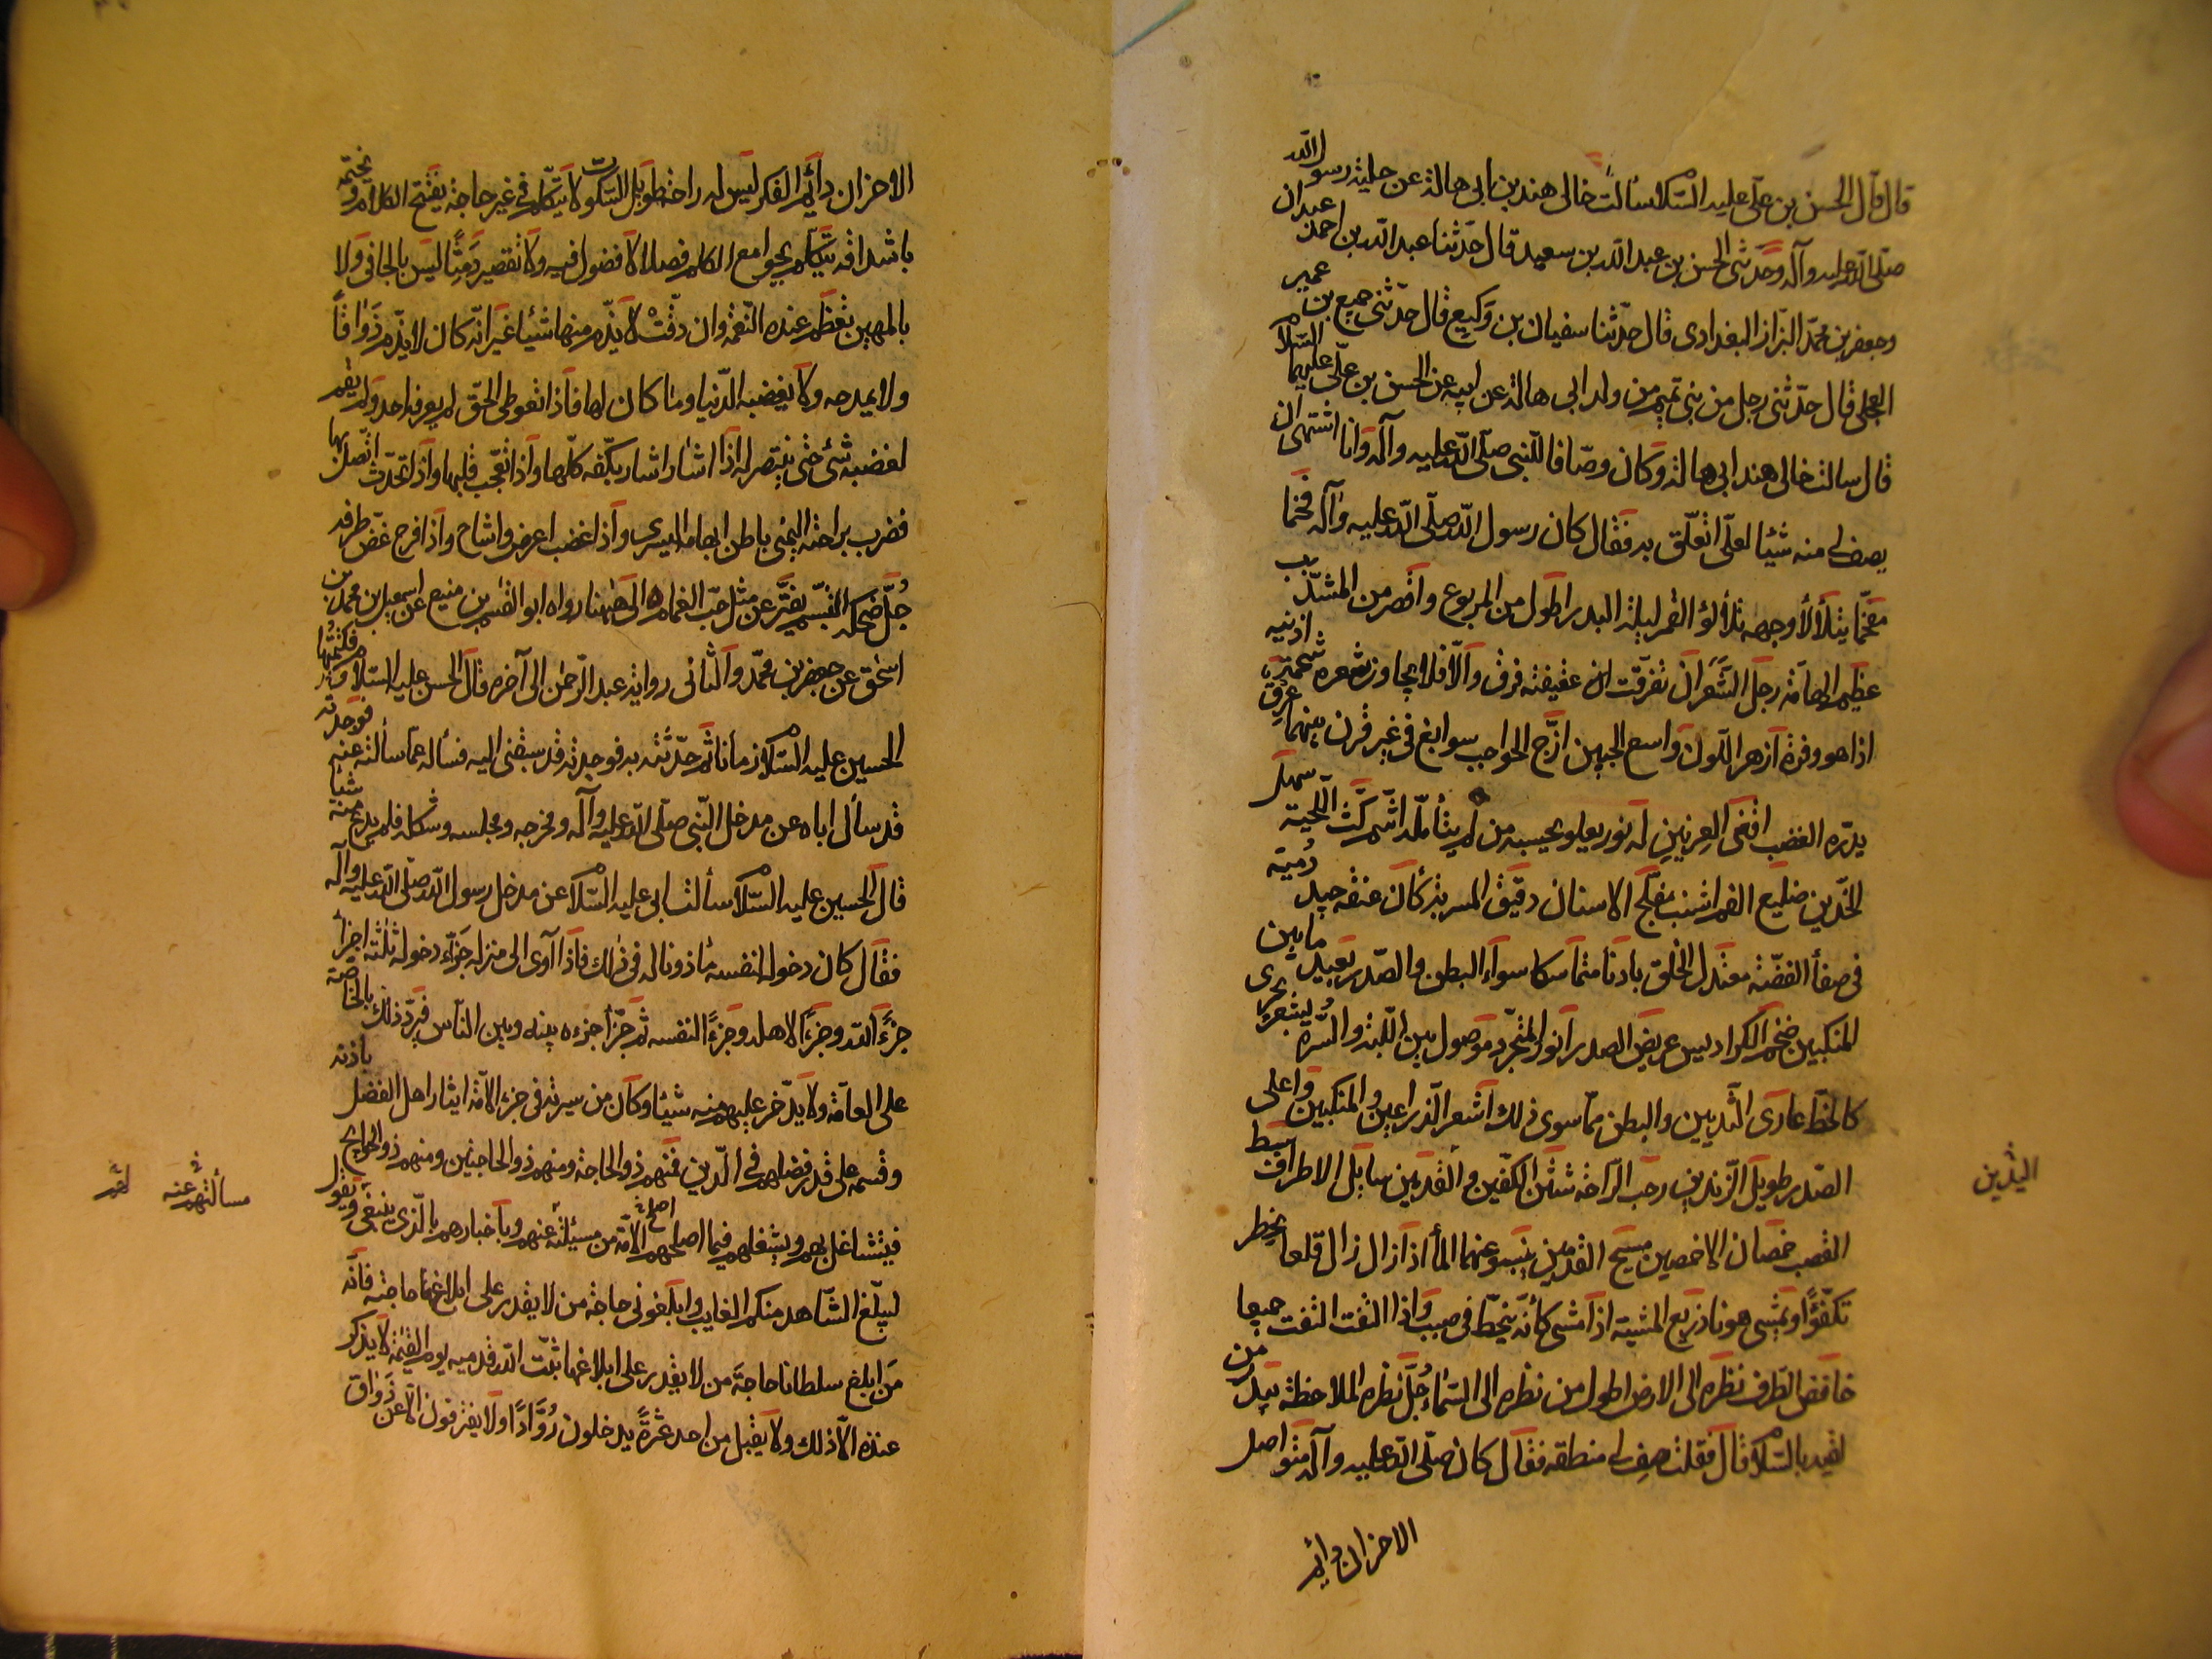 قال قال الحسن بن علی علیه السّلام سألت خالی هند بن ابی هالة عن حلیة رسول الله
صلّی الله علیه وآله وحدثنی الحسن بن عبد الله بن سعید قال حدّثنا عبد الله بن احمد عبدان
وجعفر بن محمّد البزاز البغدادی قال حدّثنا سفیان بن وکیع قال حدّثنی جمیع بن عمیر
العجلی قال حدّثنی رجل من بنی تمیم من ولد ابی هالة عن ابیه عن الحسن بن علی علیهما السّلام
قال سالت خالی هند ابی هالة وکان وصّافا للنبی صلّی الله علیه وآله وانا اشتهی ان
یصف لی منه شیئا لعلّی اتعلّق به فقال کان رسول الله صلّی الله علیه وآله فخما
مفخّما یتلألأ وجهه تلألؤ القمر لیلة البدر اطول من المربوع واقصر من المشذّب
عظیم الهامّة رجل الشّعر ان تفرّقت عقیقته فرق والّا فلا یجاوز شعره شحمة اذنیه
اذا هو وفرة ازهر اللّون واسع الجبین ازجّ الحواجب سوابغ فی غیر قرن بینهما عرق
یدرّه الغضب اقنی العرنین له نور یعلوه یحسبه من لم یتأمّله اشم کثّ اللّحیة سهل
الخدّین ضلیع الفم اشنب مفلّج الاسنان دقیق المسربة کأن عنقه جید دُمیة
فی صفأ الفضّة معتدل الخلق بادنا متماسکا سوآء البطن والصّدر بعید ما بین
المنکبین ضخم الکرادیس عریض الصدر انور المتجرّد موصول بین اللّبة والسّرة بشعر یجری
کالخطّ عاری الثّدیین والبطن ممّا سوی ذلک اشعر الذّراعین والمنکبین واعلی
الصّدر طویل الزّندین رحب الرّاحة شثن الکفّین والقدمین سایل الاطراف سبط
القصب خمصان الاخمصین مسیح القدمین ینبو عنهما المأ اذا زال زال قلعا یخطو
تکفّؤًا ویمشی هونا ذریع المشیة اذا مشی کأنّه ینحطّ فی صبب واذا التفت التفت جمیعا
خافض الطّرف نظره الی الارض اطول من نظره الی السّمأ جُلّ نظره الملاحظة یبدُر من
لقیه بالسّلام قال فقلت صِف لی منطقه فقال کان صلّی الله علیه وآله متواصل
الاحزان دائم
الیدین
الاحزان دآئم الفکر لیس له راحة طویل السّکوت لا یتکلّم فی غیر حاجة یفتتح الکلام ویختمه
باشداقه یتکلّم بجوامع الکلم فصلا لا فضول فیه ولا تقصیر دمثًا لیس بالجافی ولا
بالمهین تعظم عنده النّعمة وان دقّت لا یذّم منها شیئا غیر انّه کان لا یذّم ذواقًا
ولا یمدحه ولا یغضبه الدّنیا وما کان لها فاذا تعوطی الحقّ لم یعرفه احد ولم یقم
لغضبه شئ حتی ینتصر له اذا اشار اشار بکفّه کلّها واذا تعجّب قلبها واذا تحدّث اتّصل بها
فضرب براحته الیمنی باطن ابهامه الیسری واذا غضب اعرض واشاح واذا فرح غضّ طرفه
جُلّ ضحکه التبسّم یفترّ عن مثل حبّ الغمام الی ههنا رواه ابو القسم بن منیع عن اسمعیل بن محمد بن
اسحق عن جعفر بن محمّد والثّانی روایة عبد الرّحمن الی آخره قال الحسن علیه السّلام فکتمتها
الحسین علیه السّلام زمانا ثم حدّثته به فوجدته قد سبقنی الیه فسأله عمّا سألته عنه فوجدته
قد سأل اباه عن مدخل النّبی صلّی الله علیه وآله ومخرجه ومجلسه وشکله فلم یدع منه شیئا
قال الحسین علیه السّلام سألت ابی علیه السّلام عن مدخل رسول الله صلّی الله علیه وآله
فقال کان دخوله لنفسه مأذونا له فی ذلک فاذا آوی الی منزله جزّء دخوله ثلثة اجزأ
جزًء لله وجزًء لاهله وجزًء لنفسه ثم جزّأ جزءه بینه وبین النّاس فیردّ ذلک بالخاصة
علی العامّة ولا یدّخر علیهم منه شیئا وکان من سیرته فی جزء الامّة ایثار اهل الفضل باذنه
وقسمه علی قدر فضلهم فی الدّین فمنهم ذو الحاجة ومنهم ذو الحاجتین ومنهم ذو الحوایج
فیتشاغل بهم ویشغلهم فیما اصلحهم الامّة من مسئلته عنهم وباخبارهم بالّذی ینبغی ویقول
لیبلّغ الشّاهد منکم الغایب وابلغونی حاجة من لا یقدر علی ابلاغها حاجته فانّه
من ابلغ سلطانا حاجة من لا یقدر علی ابلاغها ثبّت الله قدمیه یوم القیمة لا یذکر
عنده الّا ذلک ولا یقبل من احد عثرةً یدخلون رُوّادًا ولا یفترقون الّا عن ذَواق
مسألتهم عنه